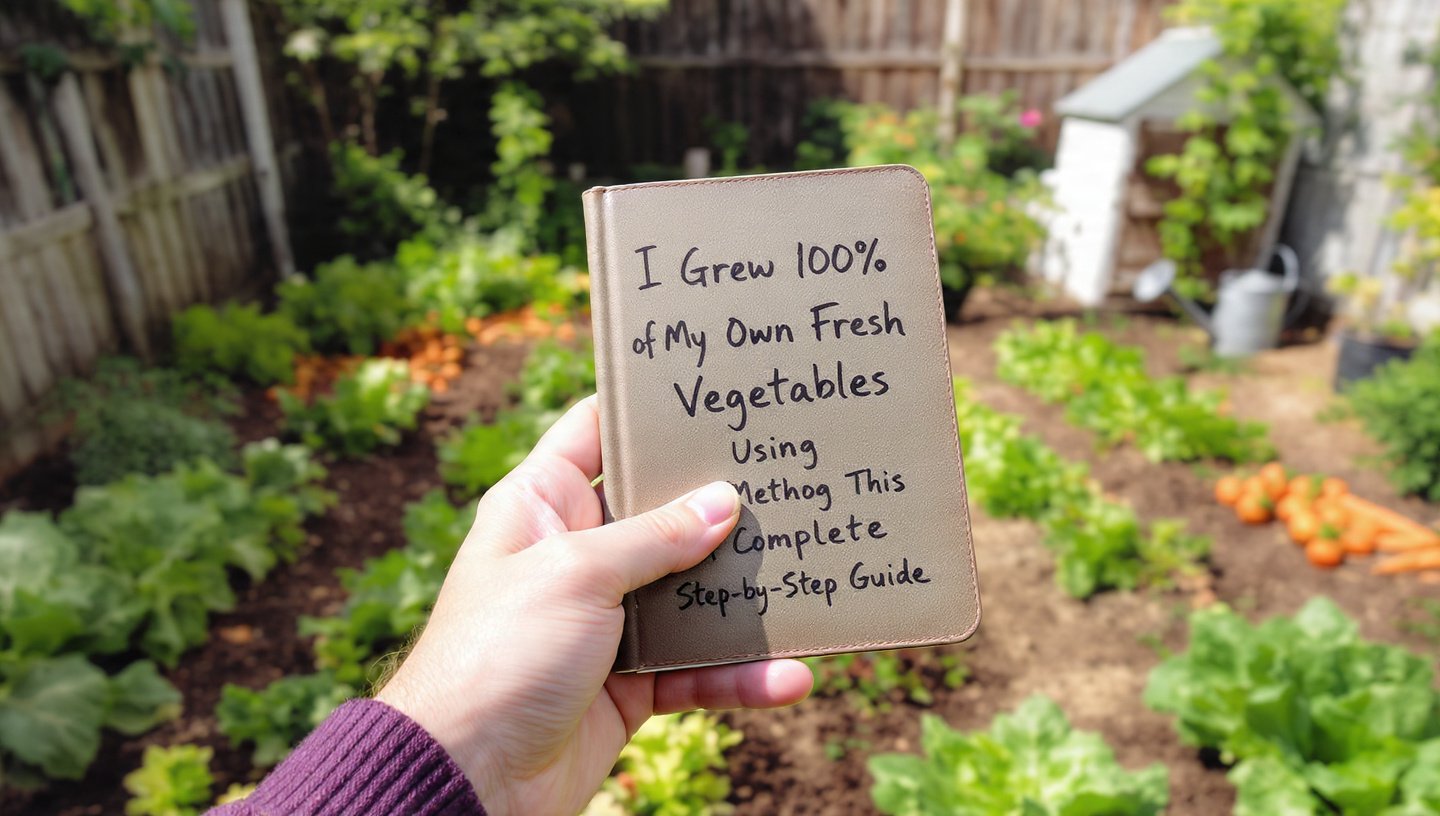 I Grew 100%
of My Own Fresh
Vegetables
Using
Methog This
Complete
Step-by-Step Guide